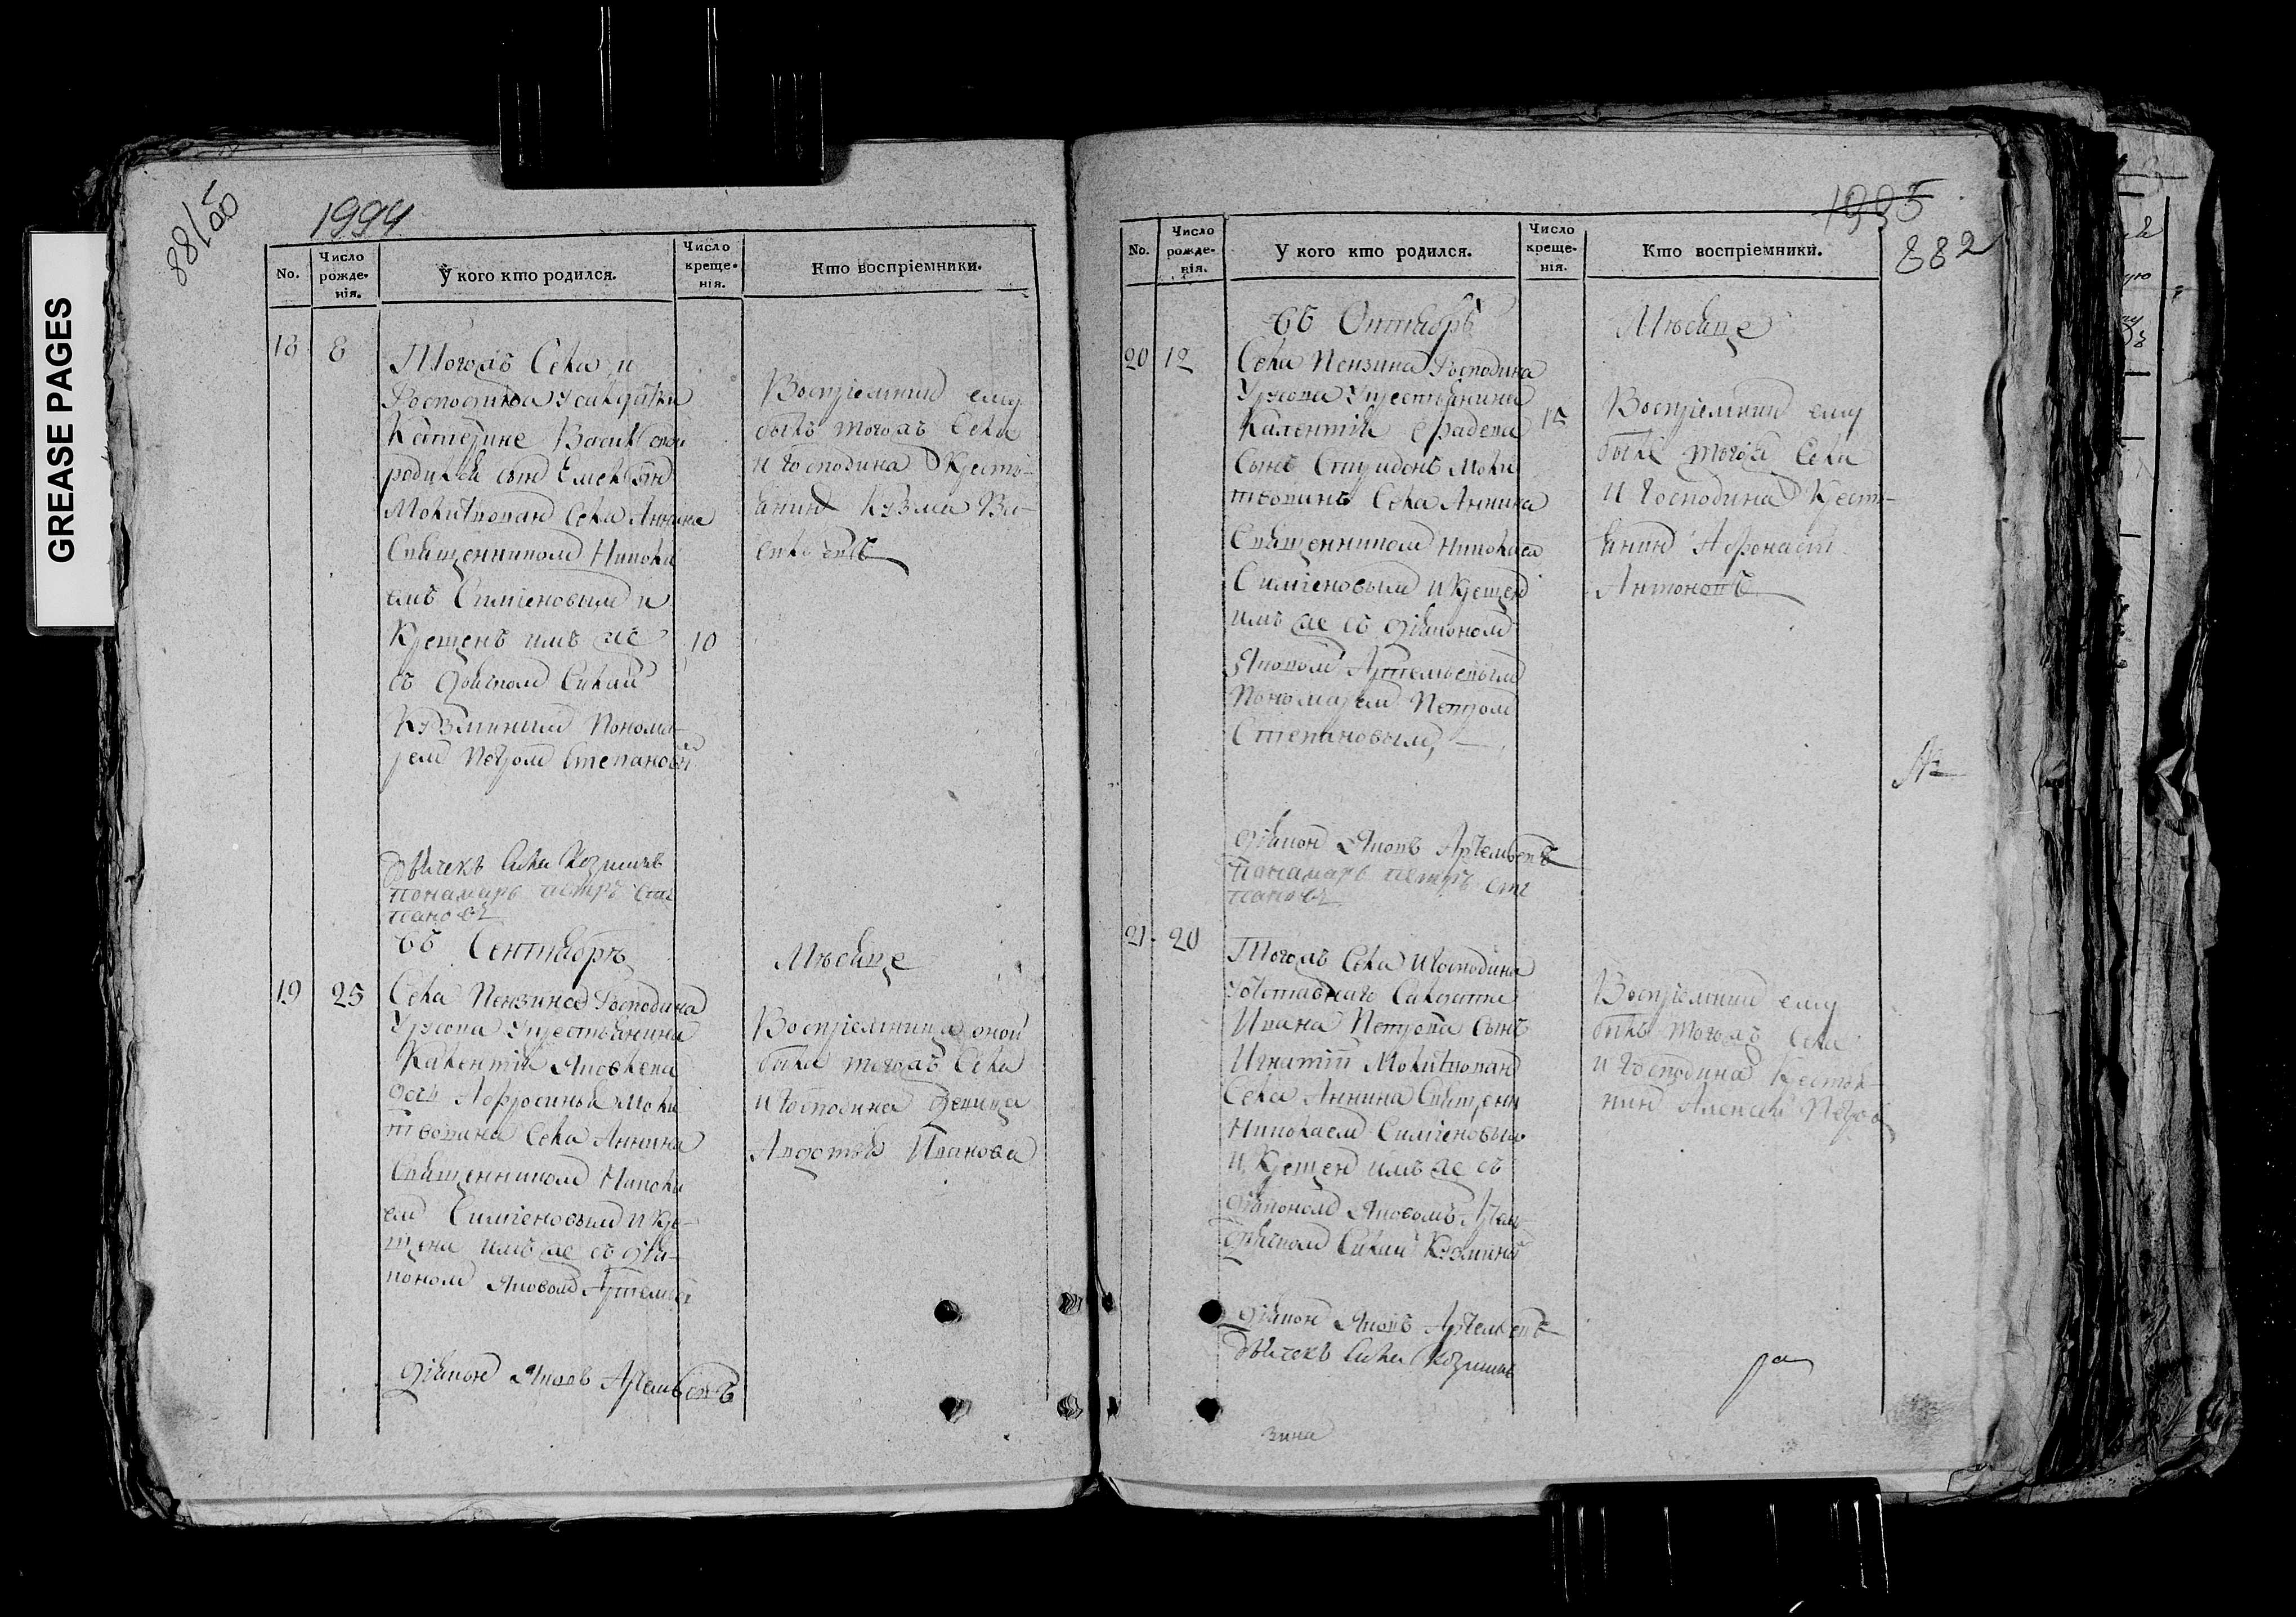 GREASE PAGES
1994
No.
Число рожде-нія.
У кого кто родился.
Число креще-нія.
Кто воспріемники.
18
8
Тогожъ Села и
Господина у салдатки
Катерине Васильевой
родился сынъ Емельянъ
Молитвованъ Села Аннина
Священникомъ Никола
емъ Симіеновымъ и
Крещенъ имъ же
10
съ дьячкомъ Силай
Кузминымъ Понома-
ремъ Петромъ Степановы
Воспріемникъ ему
былъ тогожъ Села
и Господина Крестья-
янинъ Кузма Ва-
сильевъ
дьячекъ Сила Козминъ
понамарь петръ сте
пановъ
въ Сентябрѣ
Мѣсяце
19
25
Села Пензина Господина
у крестьянина
Калентія Яковлева
дочь Афросинья Моли
твована Села Аннина
Священникомъ Никола
емъ Симіеновымъ и Кре-
щена имъ же съ дья-
кономъ Яковомъ Артемье
Воспріемница оной
была тогожъ Села
и Господина девица
Авдотья Иванова
діяконъ Яковъ Артемьевъ
1995
882
No.
Число рожде-нія.
У кого кто родился.
Число креще-нія.
Кто воспріемники.
въ Октябрѣ
Мѣсяце
20
12
Села Пензина Господина
у крестьянина
Калентія
15
Сынъ Спиридонъ Моли
твованъ Села Аннина
Священникомъ Николаем
Симіеновымъ и Крещенъ
имъ же съ діякономъ
Яковомъ Артемьевымъ
Пономаремъ Петромъ
Степановымъ,
Воспріемникъ ему
былъ тогожъ Села
и Господина Крест-
янинъ Афонасей
Антоновъ
діяконъ Яковъ Артемьевъ
понамарь петръ сте
пановъ
21
20
Тогожъ Села и Господина
Ивана Петрова Сынъ
Игнатій Молитвованъ
Села Аннина Священн
Николаемъ Симіеновым
и Крещенъ имъ же съ
діякономъ Яковомъ Артем
дьячкомъ Силай Кузминым
Воспріемникъ ему
былъ тогожъ Села
и Господина Крестья-
нинъ Алексей Петров
діяконъ Яковъ Артемьевъ
дьячекъ Сила Козминъ
ра
зина